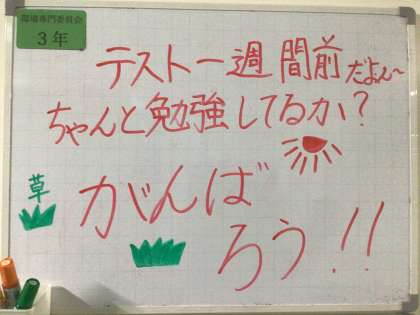 環境専門委員会
3年
テスト一週間前だよん〜
ちゃんと勉強してるか?
草
がんば
ろう!!